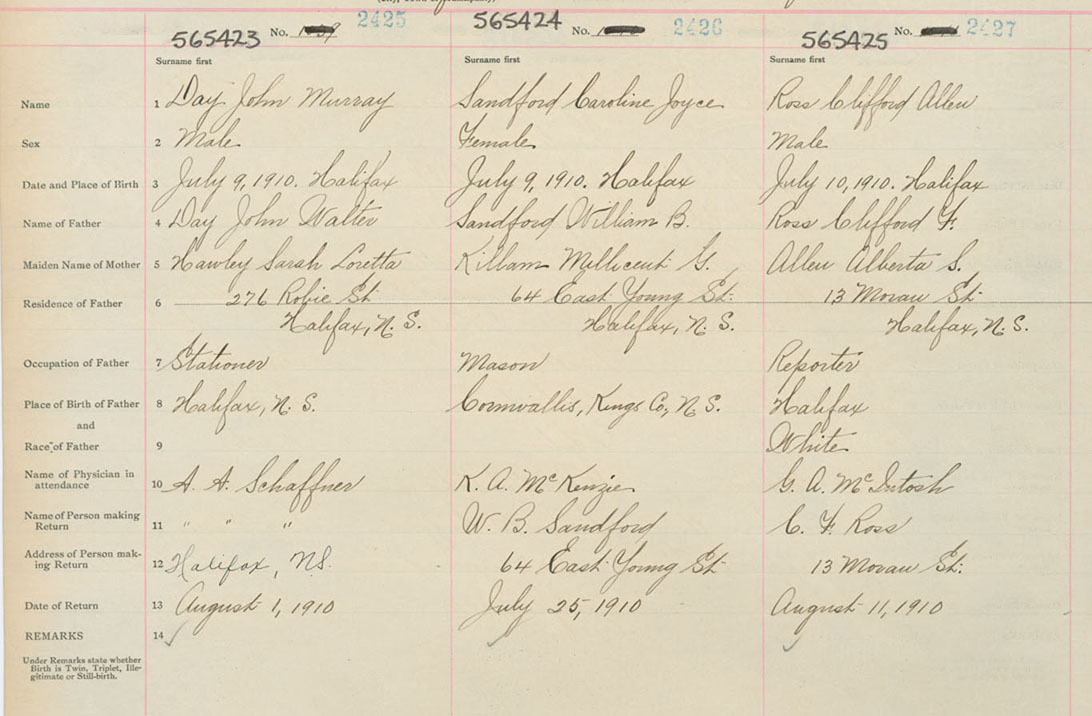 565423 No. 2425 565424 No. 2426 565425 No. 2427
Surname first Surname first Surname first
Name 1 Day John Murray Sandford Caroline Joyce Ross Clifford Allen
Sex 2 Male Female Male
Date and Place of Birth 3 July 9, 1910. Halifax July 9, 1910. Halifax July 10, 1910. Halifax
Name of Father 4 Day John Walter Sandford William B. Ross Clifford F.
Maiden Name of Mother 5 Hawley Sarah Loretta Killam Millicent G. Allen Alberta S.
Residence of Father 6 276 Robie St 64 East Young St. 13 Moran St.
Halifax, N.S. Halifax, N.S. Halifax, N.S.
Occupation of Father 7 Stationer Mason Reporter
Place of Birth of Father 8 Halifax, N.S. Cornwallis, Kings Co, N.S. Halifax
and
Race of Father 9 White
Name of Physician in
attendance 10 A. A. Schaffner K. A. McKenzie G. A. McIntosh
Name of Person making
Return 11 " " " W. B. Sandford C. F. Ross
Address of Person mak-
ing Return 12 Halifax, N.S. 64 East Young St 13 Moran St.
Date of Return 13 August 1, 1910 July 25, 1910 August 11, 1910
REMARKS 14
Under Remarks state whether
Birth is Twin, Triplet, Ille-
gitimate or Still-birth.